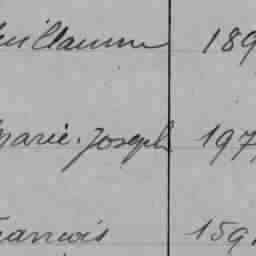 uillaume 189
Marie-Joseph 197
rancois 159